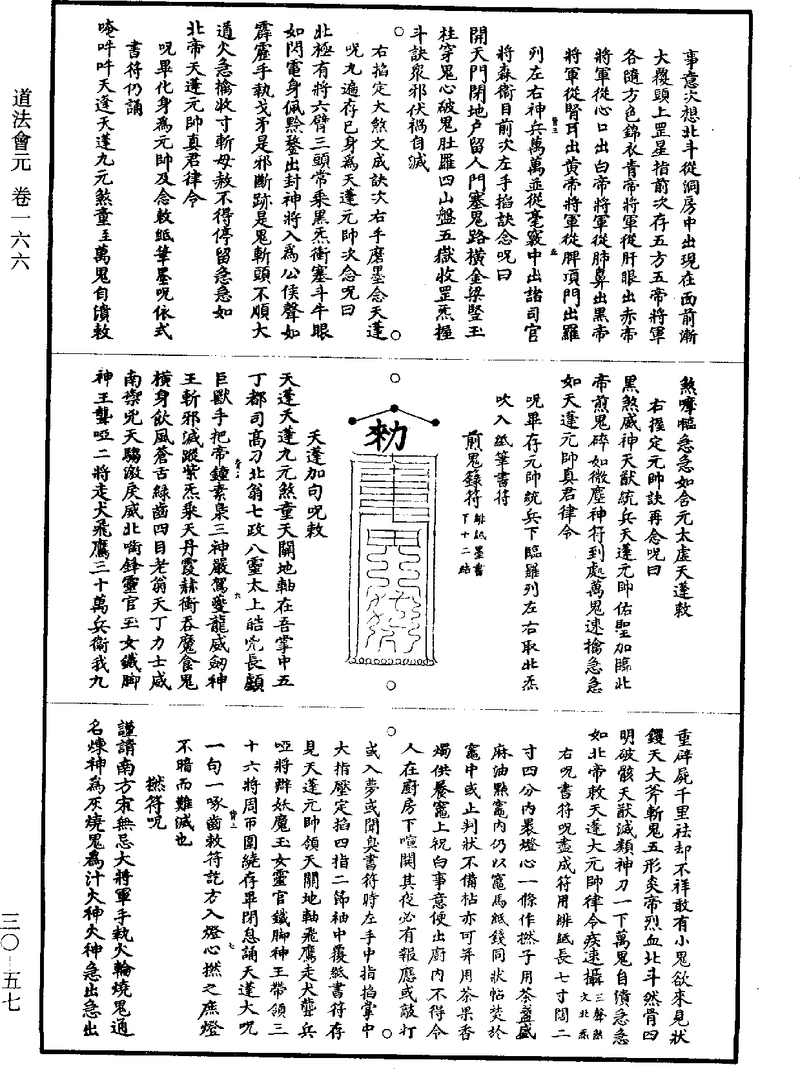 道法會元 卷一六六
三〇—五七
事意次想北斗從洞房中出現在面前漸
大覆頭上罡星指前次存五方五帝將軍
各隨方色錦衣青帝將軍從肝眼出赤帝
將軍從心口出白帝將軍從肺鼻出黑帝
將軍從腎耳出黃帝將軍從脾項門出羅
列左右神兵萬萬並從毫竅中出諸司官
將森衛目前次左手掐訣念呪曰
開天門閉地户留人門塞鬼路橫金梁豎玉
柱穿鬼心破鬼肚羅四山盤五嶽收罡炁握
斗訣衆邪伏禍自滅
右掐定大煞文成訣次右手磨墨念天蓬
呪九遍存已身為天蓬元帥次念呪曰
北極有將六臂三頭常乘黑炁衝塞斗牛眼
如閃電身佩黔鍪出封神將入為公侯聲如
霹靂手執戈矛是邪斷跡是鬼斬頭不順大
道火急擒收寸斬毋赦不得停留急急如
北帝天蓬元帥真君律令
呪畢化身為元帥及念敕紙筆墨呪依式
書符仍誦
唵吽吽天蓬天蓬九元煞童王萬鬼自潰敕
煞嚤樞急急如含元太虛天蓬敕
右握定元帥訣再念呪曰
黑煞威神天猷統兵天蓬元帥佑聖加臨北
帝煎鬼碎如微塵神符到處萬鬼速擒急急
如天蓬元帥真君律令
呪畢存元帥統兵下臨羅列左右取北炁
吹入紙筆書符
煎鬼籙符 緋紙墨書下十二結
敕
天蓬加句呪敕
天蓬天蓬九元煞童天關地軸在吾掌中五
丁都司高刀北翁七政八靈太上皓兇長顱
巨獸手把帝鐘素梟三神嚴駕夔龍威劒神
王斬邪滅蹤紫炁乘天丹霞赫衝吞魔食鬼
橫身飲風蒼舌綠齒四目老翁天丁力士威
南禦兇天騶激戾威北啣鋒靈官玉女鐵脚
神王聾啞二將走犬飛鷹三十萬兵衛我九
重辟屍千里祛却不祥敢有小鬼欲來見狀
钁天大斧斬鬼五形炎帝烈血北斗然骨四
明破骸天猷滅類神刀一下萬鬼自潰急急
如北帝敕天蓬大元帥律令疾速攝 三聲煞文北炁
右呪書符呪盡成符用緋紙長七寸闊二
寸四分內裹燈心一條作撚子用茶盞盛
麻油點竈內仍以竈馬紙錢同狀帖焚於
竈中或止判狀不備帖亦可并用茶果香
燭供養竈上祝白事意便出廚內不得令
人在廚房下喧鬧其夜必有報應或敲打
或入夢或聞臭書符時左手中指掐掌中
大指壓定掐四指二節袖中覆紙書符存
見天蓬元帥領天關地軸飛鷹走犬聾兵
啞將辦妖魔王女靈官鐵脚神王帶領三
十六將周帀圍繞存畢閉息誦天蓬大呪
一句一啄齒敕符訖方入燈心撚之庶燈
不暗而難滅也
撚符呪
謹請南方宋無忌大將軍手執火輪燒鬼通
名煉神為灰燒鬼為汁火神火神急出急出